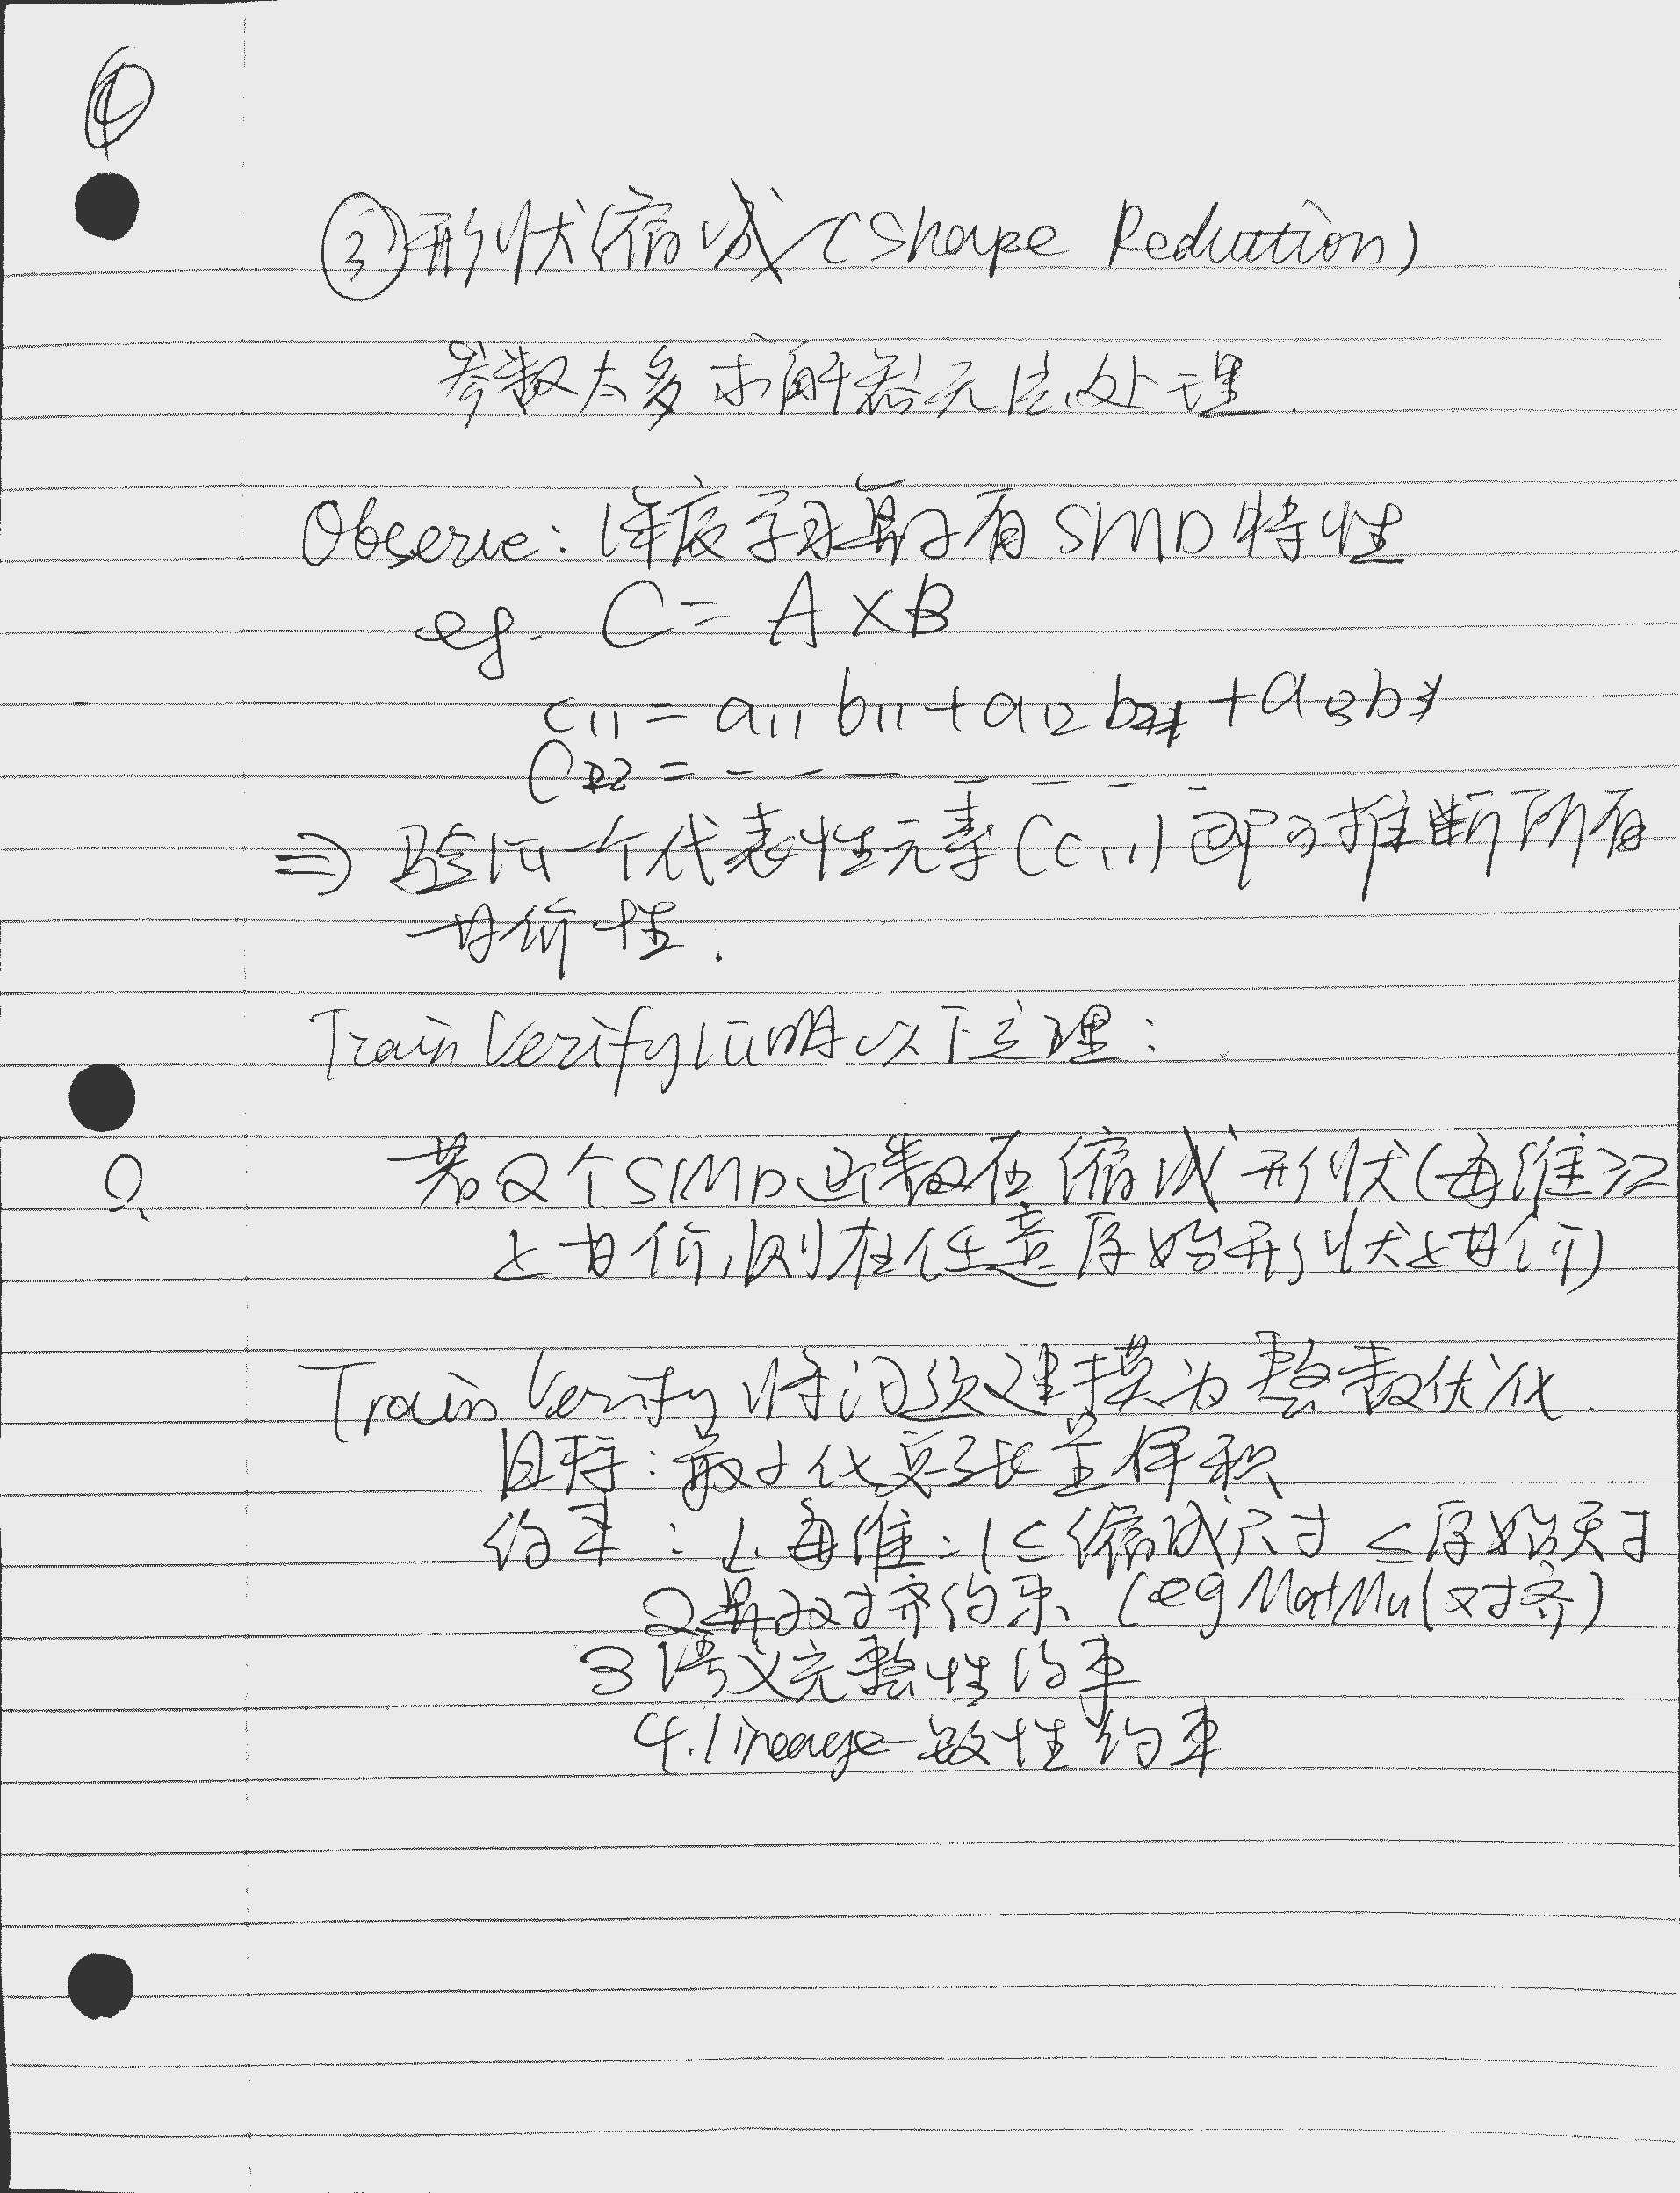 ③形状缩减(Shape Reduction)
参数太多求解器无法处理.
Observe: 深度学习算子有SIMD特性
eg. C = A × B
c11 = a11 b11 + a12 b21 + a13 b31
C22 = - - - - - - -
⇒ 验证一个代表性元素(c11)即可推断所有
等价性.
TrainVerify证明以下定理:
若2个SIMD函数在缩减形状(每维≥2
上等价,则在任意原始形状上等价)
TrainVerify将问题建模为整数优化.
目标:最小化总张量体积
约束: 1.每维:1≤缩减尺寸 ≤原始尺寸
2算子对齐约束 (eg MatMul对齐)
3语义完整性约束
4.lineage一致性约束